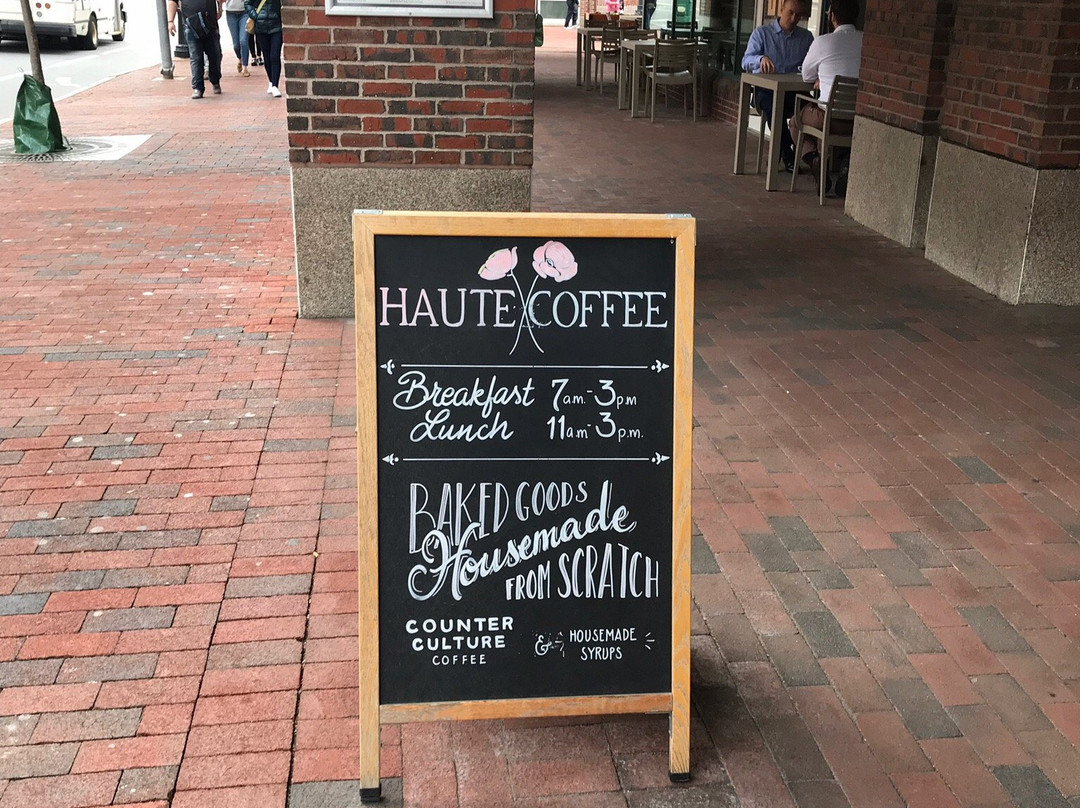 HAUTE COFFEE
Breakfast 7a.m.-3pm
Lunch 11am-3p.m.
BAKED GOODS
Housemade
FROM SCRATCH
COUNTER
CULTURE
COFFEE
& HOUSEMADE
SYRUPS